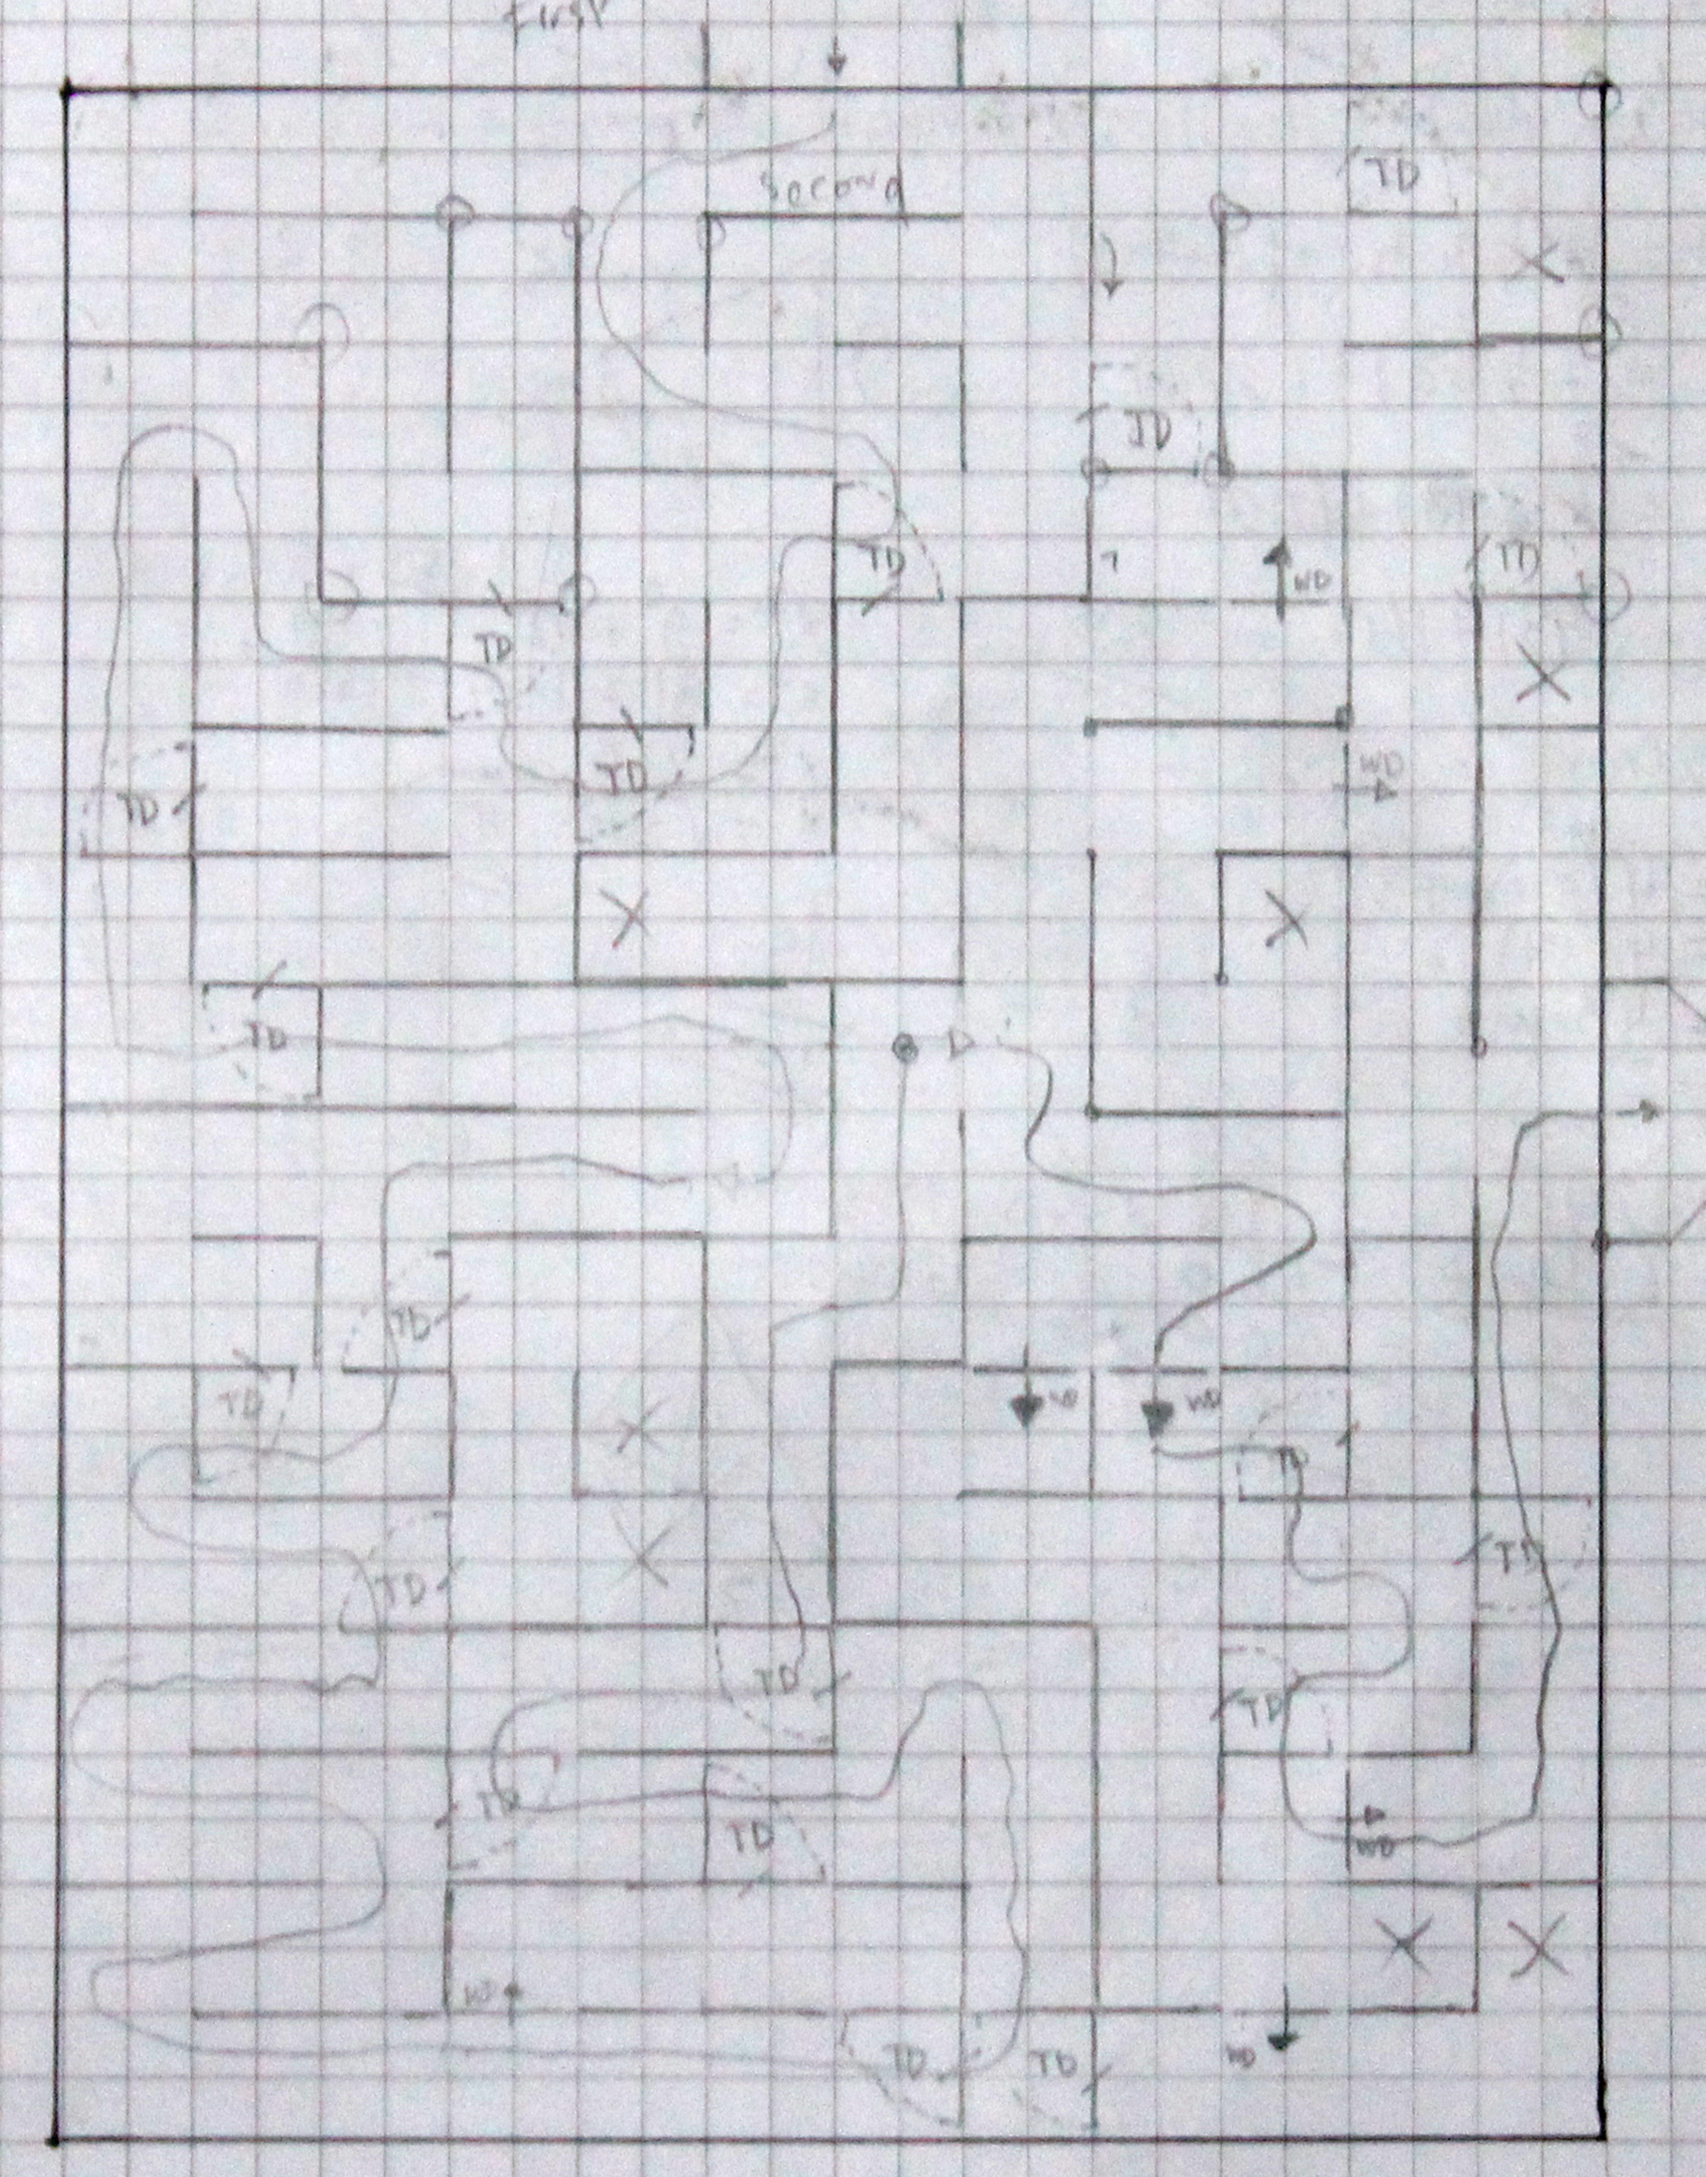 First
second
TD
X
TD
TD
WD
TD
TD
X
TD
WD
TD
X
X
TD
TD
X
TD
WD
WD
TD
X
TD
TD
TD
TD
TD
TD
WD
X
X
WD
TD
TD
WD